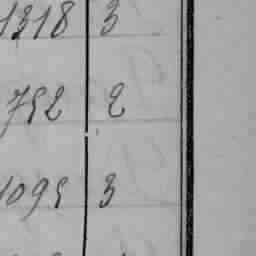 1318 3
752 2
1095 3